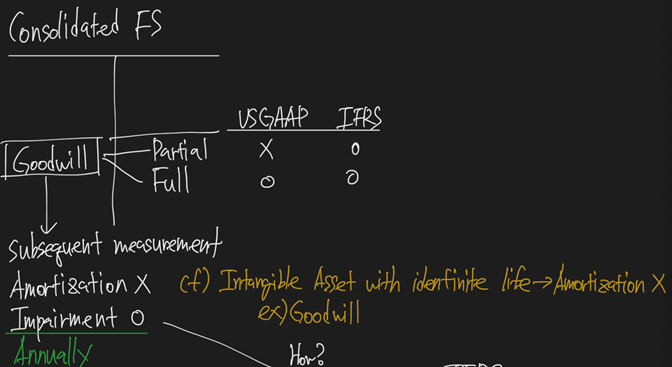 Consolidated FS
USGAAP IFRS
Goodwill Partial X O
Full O O
subsequent measurement
Amortization X (cf) Intangible Asset with idenfinite life → Amortization X
ex) Goodwill
Impairment O
Annually
How?
IFRS